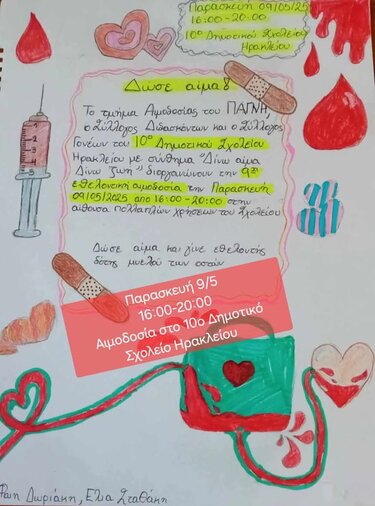 Παρασκευή 09/05/2025
16:00-20:00
10º Δημοτικό Σχολείο
Ηρακλείου
Δώσε αίμα!
Το τμήμα Αιμοδοσίας του ΠΑΓΝΗ,
ο Σύλλογος Διδασκόντων και ο Σύλλογος
Γονέων του 10º Δημοτικού Σχολείου
Ηρακλείου με σύνθημα "Δίνω αίμα
Δίνω ζωή" διοργανώνουν την
εθελοντική αιμοδοσία την Παρασκευή
09/05/2025 από 16:00-20:00 στην
αίθουσα πολλαπλών χρήσεων του Σχολείου
Δώσε αίμα και γίνε εθελοντής
δότης μυελού των οστών
Παρασκευή 9/5
16:00-20:00
Αιμοδοσία στο 10ο Δημοτικό
Σχολείο Ηρακλείου
Φαίη Δωριάκη, Ελια Σταθάκη